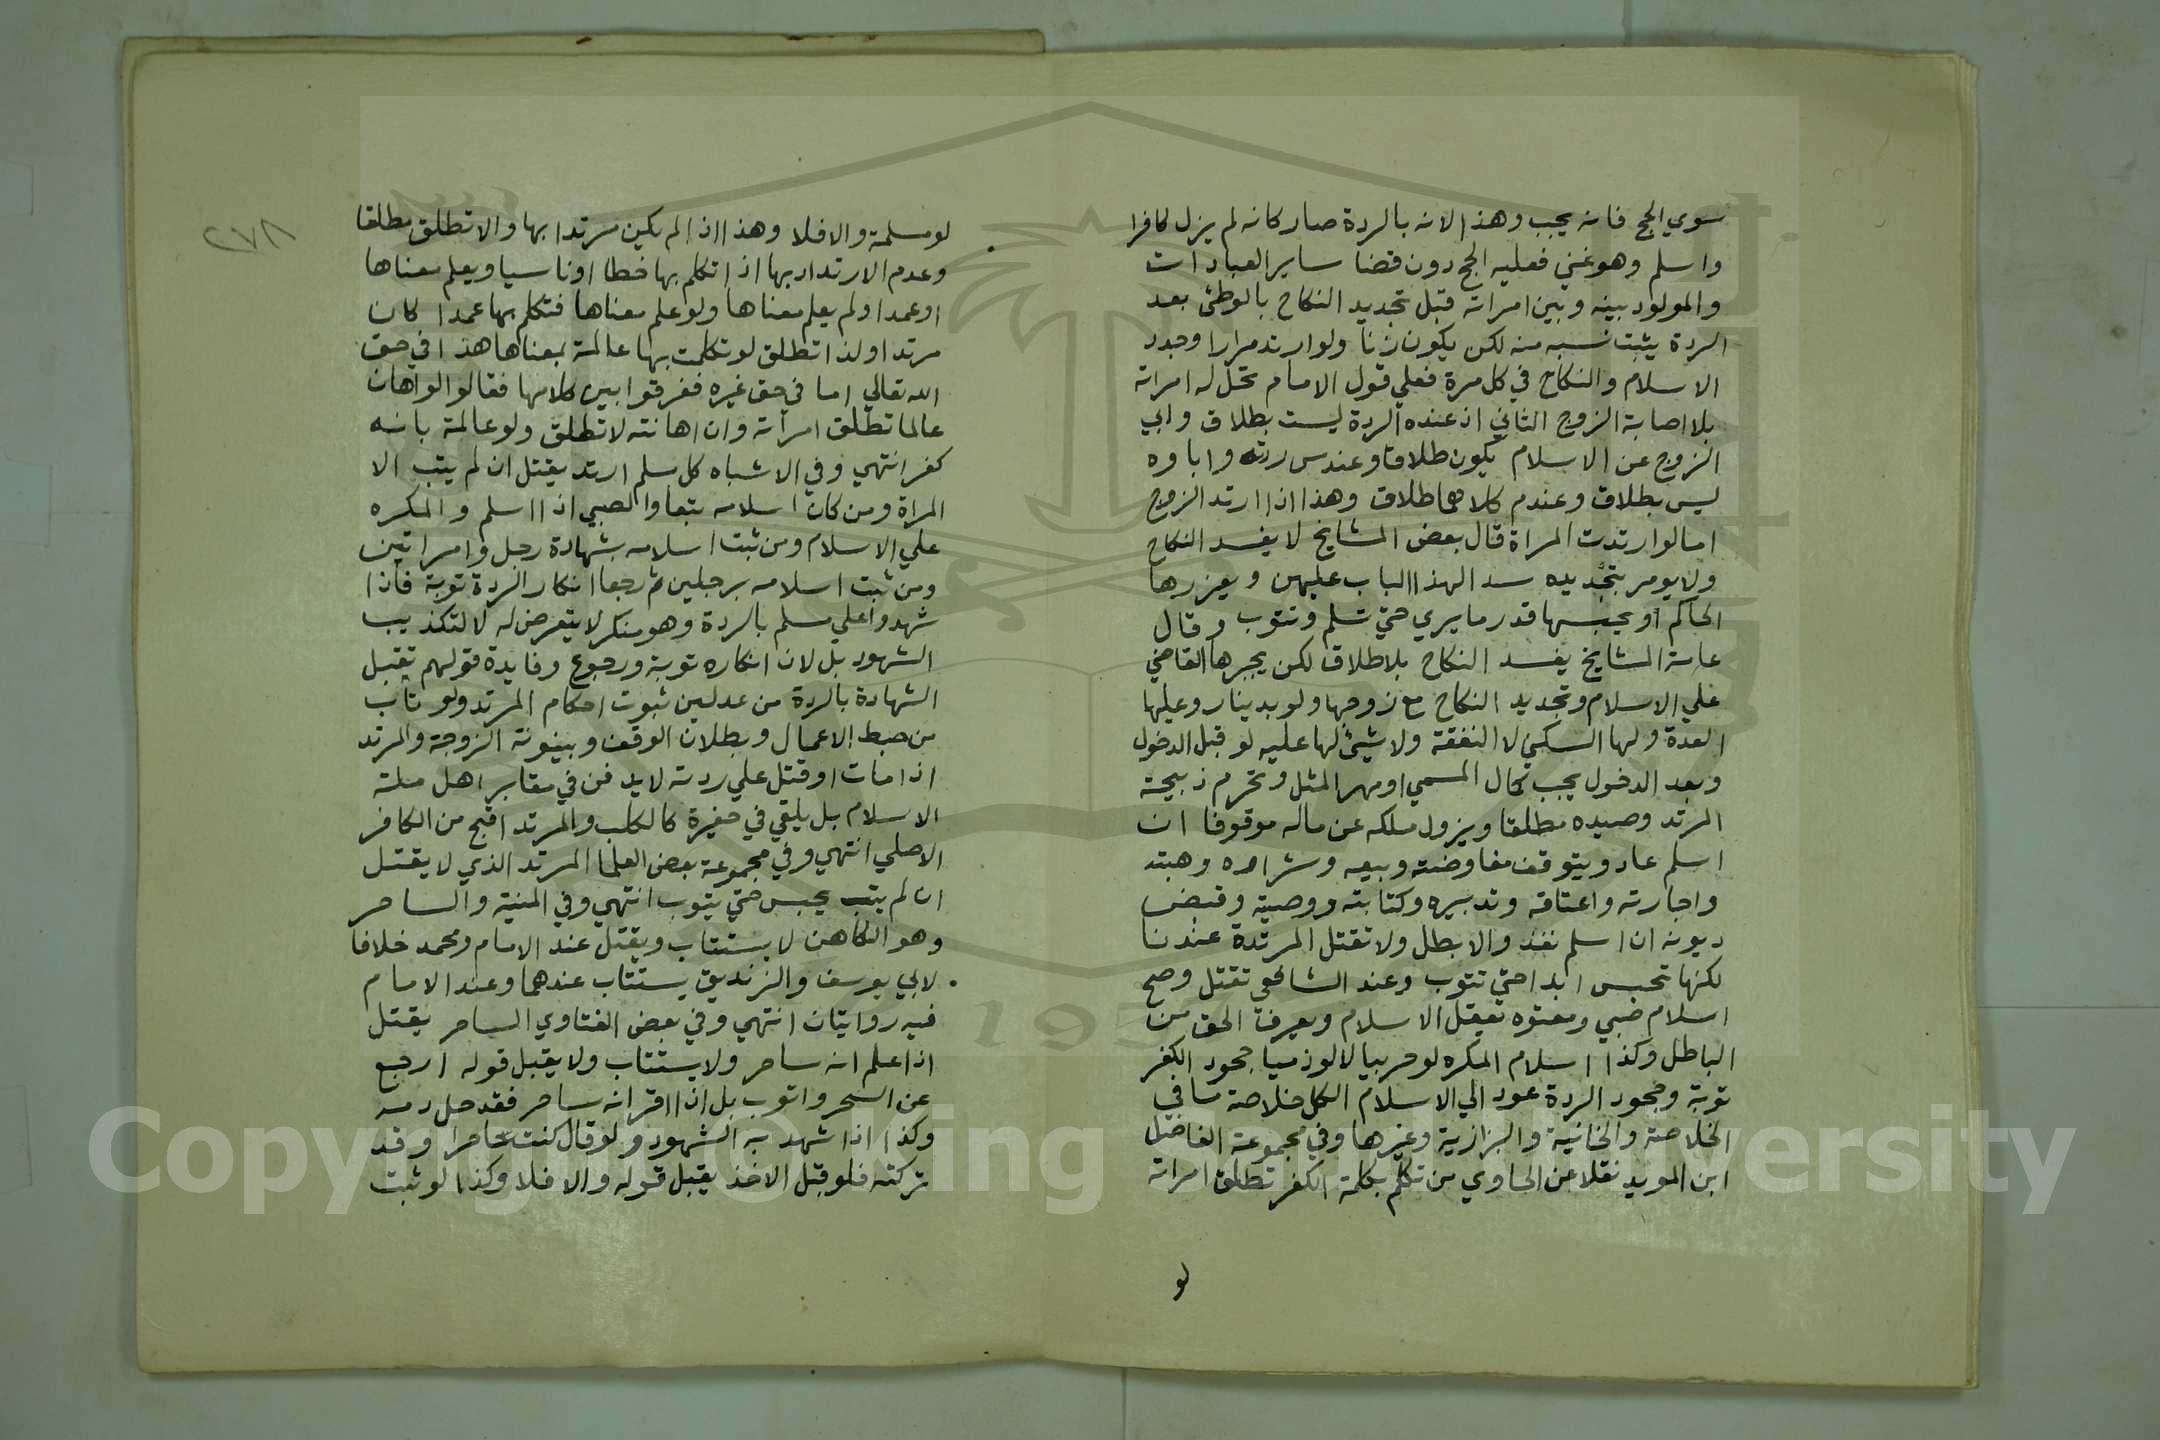 سوي الحج فانه يجب وهذا لانه بالردة صار كانه لم يزل كافرا
واسلم وهو غني فعليه الحج دون قضا ساير العبادات
والمولود بينه وبين امراته قبل تجديد النكاح بالوطئ بعد
الردة يثبت نسبه منه لكن يكون زنا ولو ارتد مرارا وجدد
الاسلام والنكاح في كل مرة فعلي قول الامام تحل له امراته
بلا اصابة الزوج الثاني اذ عنده الردة ليست بطلاق وابي
الزوج عن الاسلام يكون طلاقا وعند س ردته واباوه
ليس بطلاق وعند م كلاهما طلاق وهذا اذا ارتد الزوج
اما لو ارتدت المراة قال بعض المشايخ لا يفسد النكاح
ولا يومر بتجديده سدا لهذا الباب عليهن ويعزرها
الحاكم او يحبسها قدر ما يري حتي تسلم وتتوب وقال
عامة المشايخ يفسد النكاح بلا طلاق لكن يجبرها القاضي
علي الاسلام وتجديد النكاح مع زوجها ولو بدينار وعليها
العدة ولها السكني لا النفقة ولا شيئ لها عليه لو قبل الدخول
وبعد الدخول يجب كمال المسمي او مهر المثل وتحرم ذبيحة
المرتد وصيده مطلقا ويزول ملكه عن ماله موقوفا ان
اسلم عاد ويتوقف مفاوضته وبيعه وشراءه وهبته
واجارته واعتاقه وتدبيره وكتابته ووصيته وقبض
ديونه ان اسلم نفذ والا بطل ولا تقتل المرتدة عندنا
لكنها تحبس ابدا حتي تتوب وعند الشافعي تقتل وصح
اسلام صبي ومعتوه تعقل الاسلام ويعرف الحق من
الباطل وكذا اسلام المكره لو حربيا لا لو ذميا جحود الكفر
توبة وجحود الردة عود الي الاسلام الكل خلاصة ما في
الخلاصة والخانية والبزازية وغيرها وفي مجموعة الفاضل
ابن المويد نقلا عن الحاوي من تكلم بكلمة الكفر تطلق امراته
لو
٢٧٨
لو مسلمة والا فلا وهذا اذا لم يكن مرتدا بها والا تطلق مطلقا
وعدم الارتداد بها اذا تكلم بها خطا او ناسيا ويعلم معناها
او عمدا ولم يعلم معناها ولو علم معناها فتكلم بها عمدا كان
مرتدا ولذا تطلق لو تكلمت بها عالمة بمعناها هذا في حق
الله تعالي اما في حق غيره ففرقوا بين كلامها فقالوا لو اهان
عالما تطلق امراته وان اهانته لا تطلق ولو عالمة بانه
كفر انتهي وفي الاشباه كل مسلم ارتد يقتل ان لم يتب الا
المراة ومن كان اسلامه تبعا والصبي اذا اسلم والمكره
علي الاسلام ومن ثبت اسلامه بشهادة رجل وامراتين
ومن ثبت اسلامه برجلين ثم رجعا انكار الردة توبة فاذا
شهدوا علي مسلم بالردة وهو منكر لا يتعرض له لا لتكذيب
الشهود بل لان انكاره توبة ورجوع وفايدة قولهم تقبل
الشهادة بالردة من عدلين ثبوت احكام المرتد ولو تاب
من حبط الاعمال وبطلان الوقف وبينونة الزوجة والمرتد
اذا مات او قتل علي ردته لا يدفن في مقابر اهل ملة
الاسلام بل يلقي في حفيرة كالكلب والمرتد اقبح من الكافر
الاصلي انتهي وفي مجموعة بعض العلما المرتد الذي لا يقتل
ان لم يتب يحبس حتي يتوب انتهي وفي المنية والساحر
وهو الكاهن لا يستتاب ويقتل عند الامام ومحمد خلافا
لابي يوسف والزنديق يستتاب عندهما وعند الامام
فيه روايتان انتهي وفي بعض الفتاوي الساحر يقتل
اذا علم انه ساحر ولا يستتاب ولا يقبل قوله ارجع
عن السحر واتوب بل اذا اقر انه ساحر فقد حل دمه
وكذا اذا شهد به الشهود ولو قال كنت ساحرا وقد
تركته فلو قبل الاخذ يقبل قوله والا فلا وكذا لو ثبت